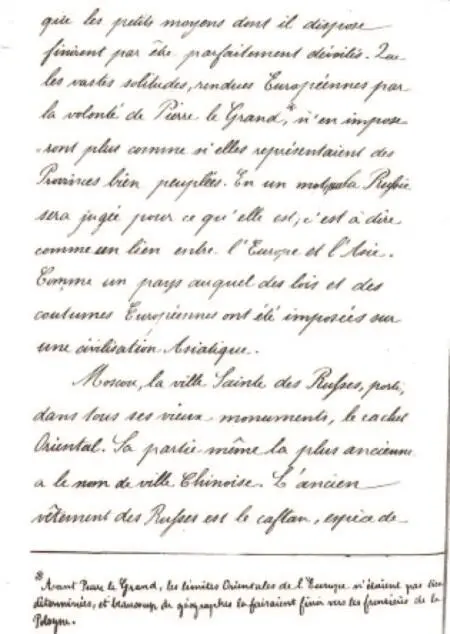 que les petits moyens dont il dispose
finiront par être parfaitement dévoilés. Que
les vastes solitudes, rendues Européennes par
la volonté de Pierre le Grand,* n'en impose
-ront plus comme si elles représentaient des
Provinces bien peuplées. En un mot, la Russie
sera jugée pour ce qu'elle est; c'est à dire
comme un lien entre l'Europe et l'Asie.
Comme un pays auquel des lois et des
coutumes Européennes ont été imposées sur
une civilisation Asiatique.
Moscou, la ville Sainte des Russes, porte,
dans tous ses vieux monuments, le cachet
Oriental. Sa partie même la plus ancienne
a le nom de ville Chinoise. L'ancien
vêtement des Russes est le caftan, espèce de
* Avant Pierre le Grand, les limites Orientales de l'Europe n'étaient pas bien
déterminées, et beaucoup de géographes la faisaient finir vers les frontières de la
Pologne.